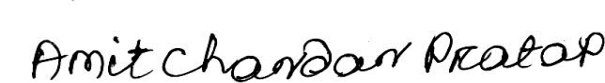 Amit Chandan Pratap